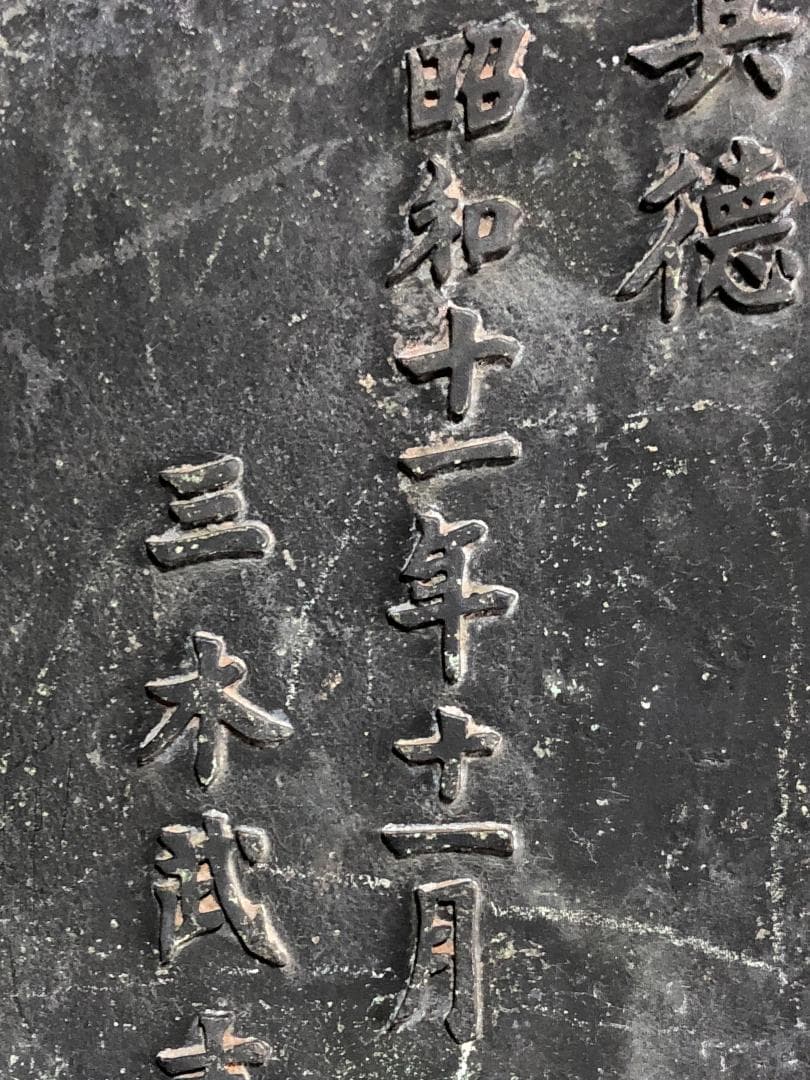 其德
昭和十一年十一月
三木武吉